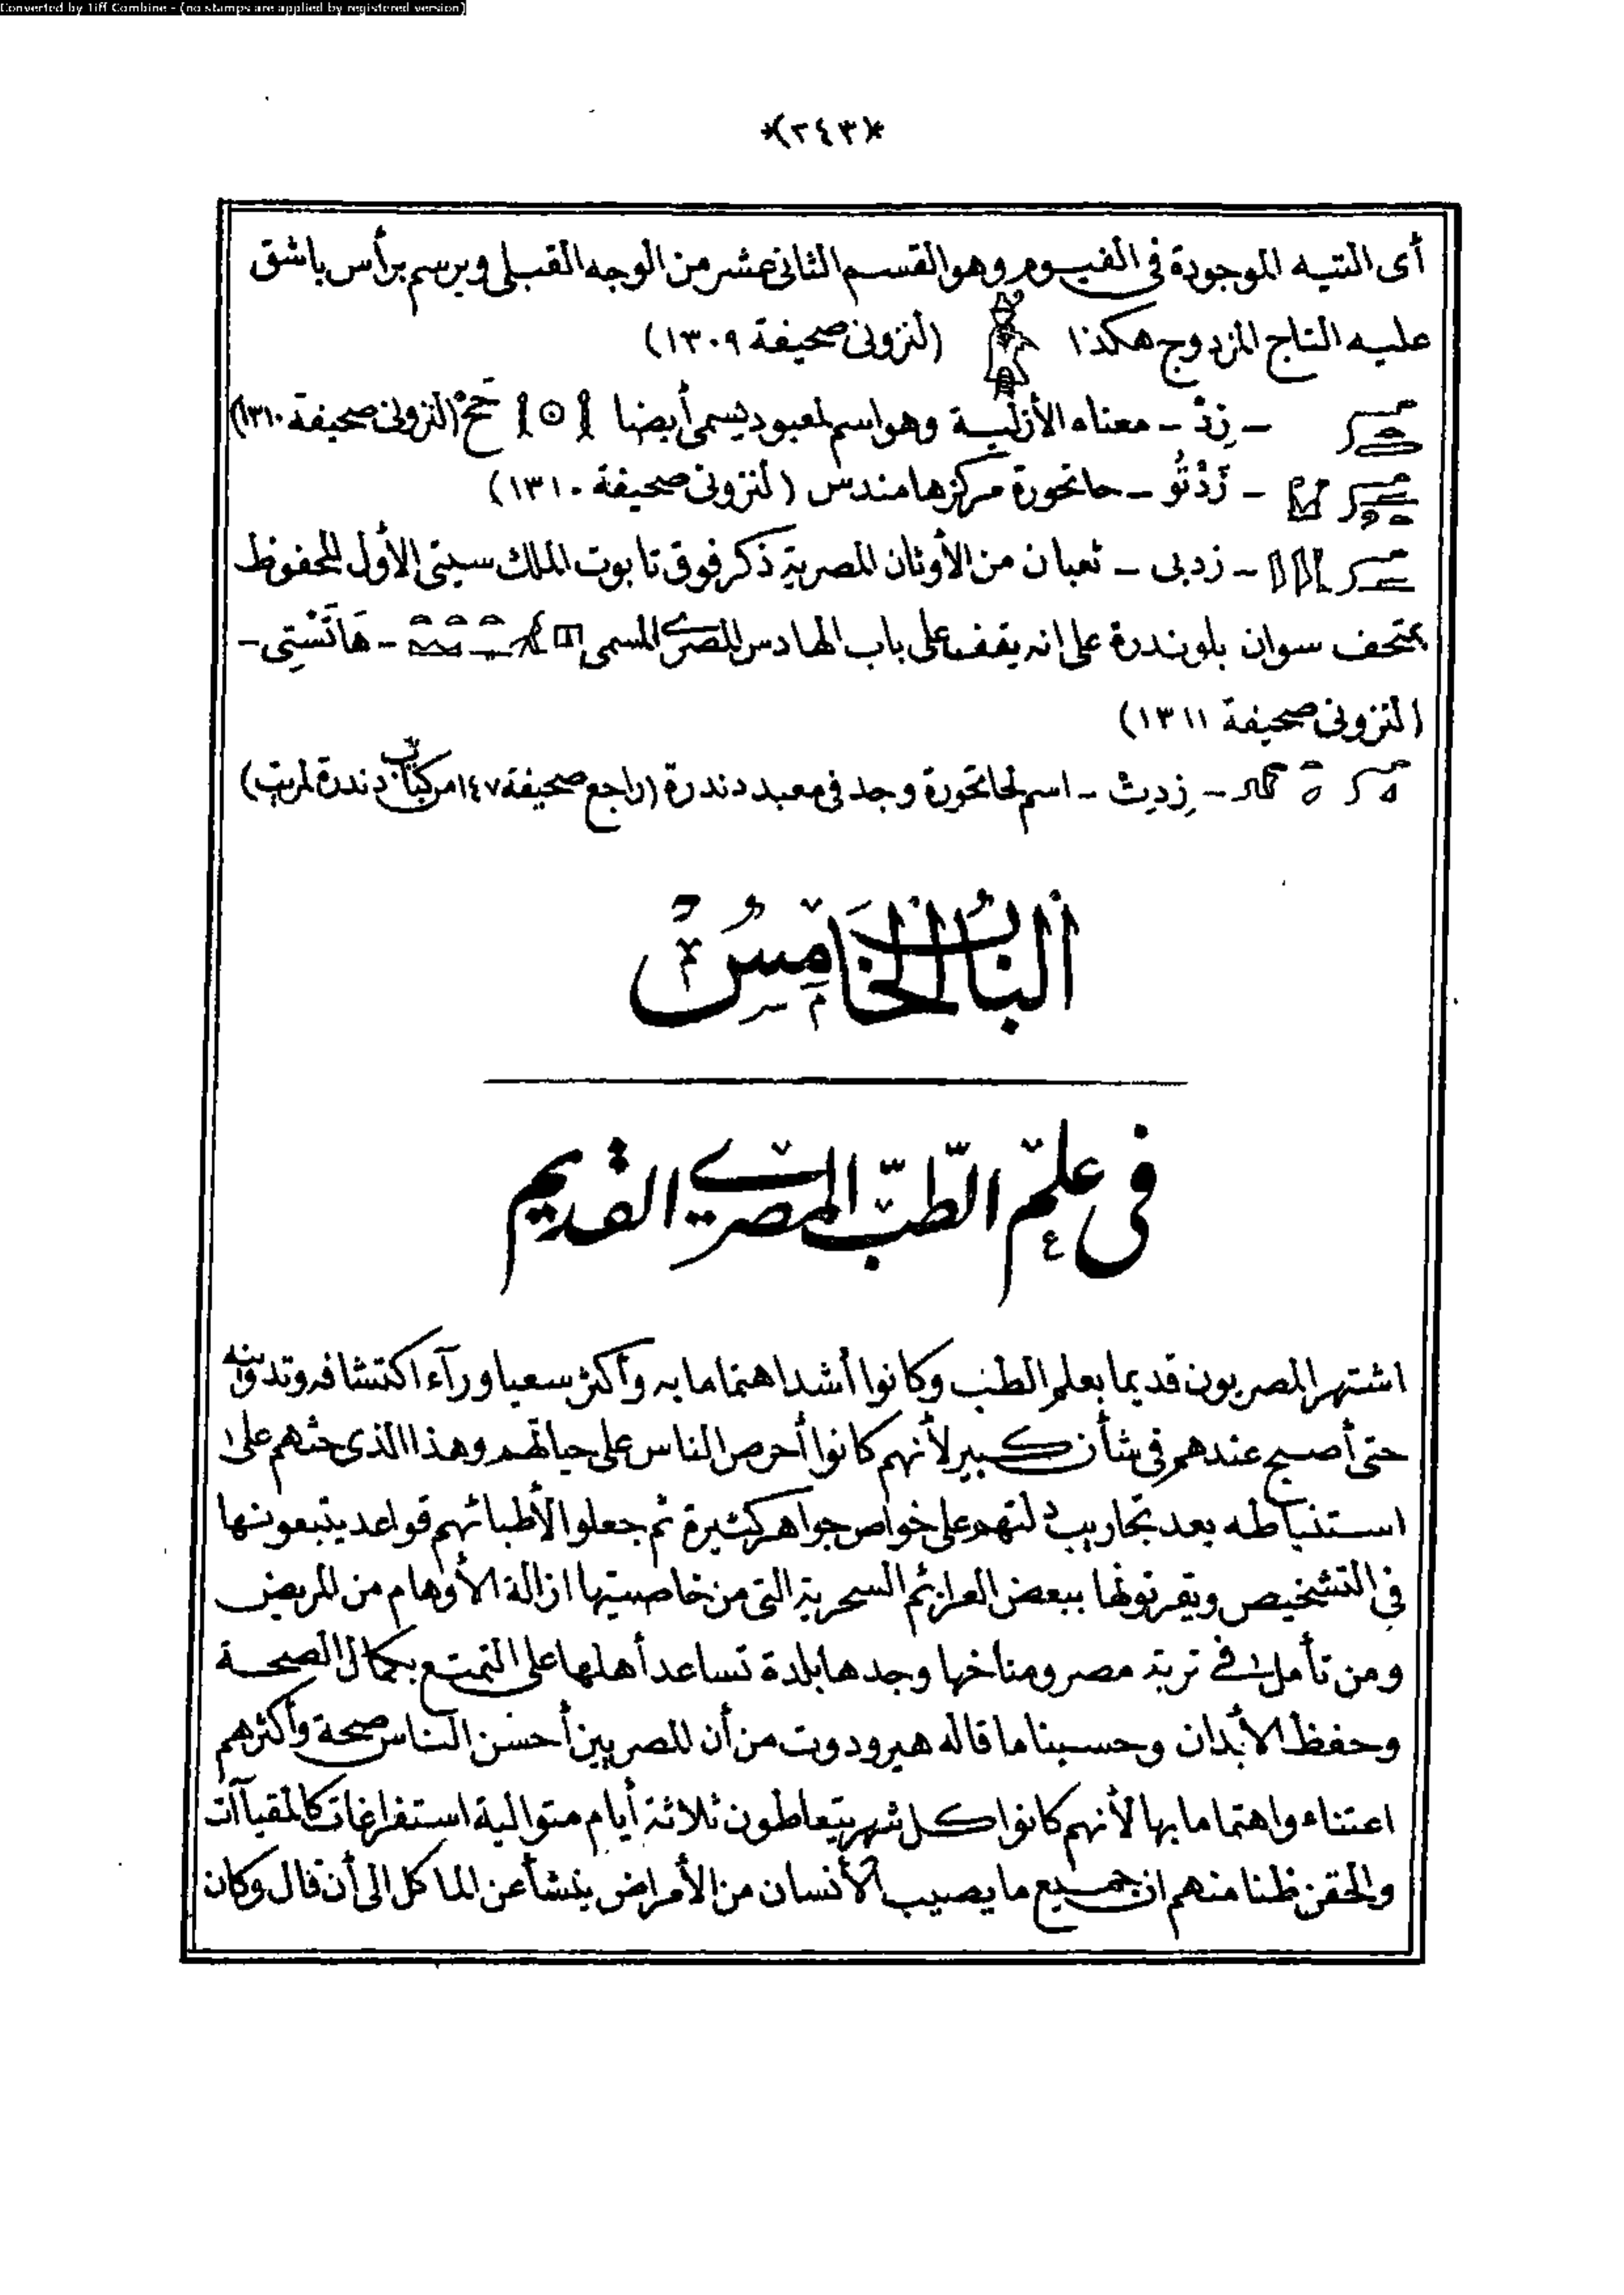 Converted by Tiff Combine - (no stamps are applied by registered version)
*(٢٤٣)*
أى التتيه الموجودة فى الفيوم وهو القسم الثانى عشر من الوجه القبلى ويرسم برأس باشق
عليه التاج المزدوج هكذا (لنزونى صحيفة ١٣٠٩)
- زِدْ - معناه الأزلية وهو اسم لمعبود يسمى أيضا حَحْ (لنزونى صحيفة ١٣١٠)
- زَدْتُو - حاتحورة مركزها مندس (لنزونى صحيفة ١٣١٠)
- زدبى - ثعبان من الأوثان المصرية ذكر فوق تابوت الملك سيتى الأول المحفوظ
بمتحف سوان بلوندرة على انه يقف على باب الهادس المصرى المسمى - هَاتَسْتِى -
(لنزونى صحيفة ١٣١١)
- زِدِث - اسم لحاتحورة وجد فى معبد دندرة (راجع صحيفة ١٤٧ من كتاب دندرة لمريت)
البَابُ الخَامِسُ
فى عِلْمِ الطِّبِّ المصرى القديم
اشتهر المصريون قديما بعلم الطب وكانوا أشد اهتماما به وأكثر سعيا ورآء اكتشافه وتدوينه
حتى أصبح عندهم فى شأن كبير لأنهم كانوا أحرص الناس على حياتهم وهذا الذى حثهم على
استنباطه بعد تجاريب دلتهم على خواص جواهر كثيرة ثم جعلوا لأطبائهم قواعد يتبعونها
فى التشخيص ويقرنونها ببعض العزائم السحرية التى من خاصيتها ازالة الأوهام من المريض
ومن تأمل فى تربة مصر ومناخها وجدها بلدة تساعد أهلها على التمتع بكمال الصحة
وحفظ الأبدان وحسبنا ما قاله هيرودوت من أن المصريين أحسن الناس صحة وأكثرهم
اعتناء واهتماما بها لأنهم كانوا كل شهر يتعاطون ثلاثة أيام متوالية استفراغات كالمقيآت
والحقن ظنا منهم ان جميع ما يصيب الأنسان من الأمراض ينشأ عن المآكل الى أن قال وكان